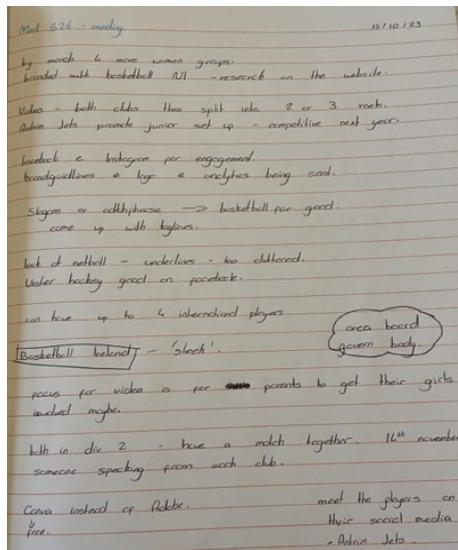 Med 526 - meeting
18/10/23
by march 4 more women groups.
branded with basketball NI - research on the website.
Video - both clubs then split into 2 or 3 reels.
Antrim Jets promote junior set up - competitive next year.
facebook & Instagram for engagement.
brandguidlines & logo & analytics being sent.
Slogan or catchphrase → basketball for good.
come up with taglines.
look at netball - underlines - too cluttered.
Ulster hockey good on facebook.
can have up to 4 international players
area board
govern body.
Basketball Ireland - 'slack'.
focus for video is for parents to get their girls
involved maybe.
both in div 2 - have a match together. 14th november
someone speaking from each club.
Canva instead of Adobe.
free.
meet the players on
their social media
- Antrim Jets.